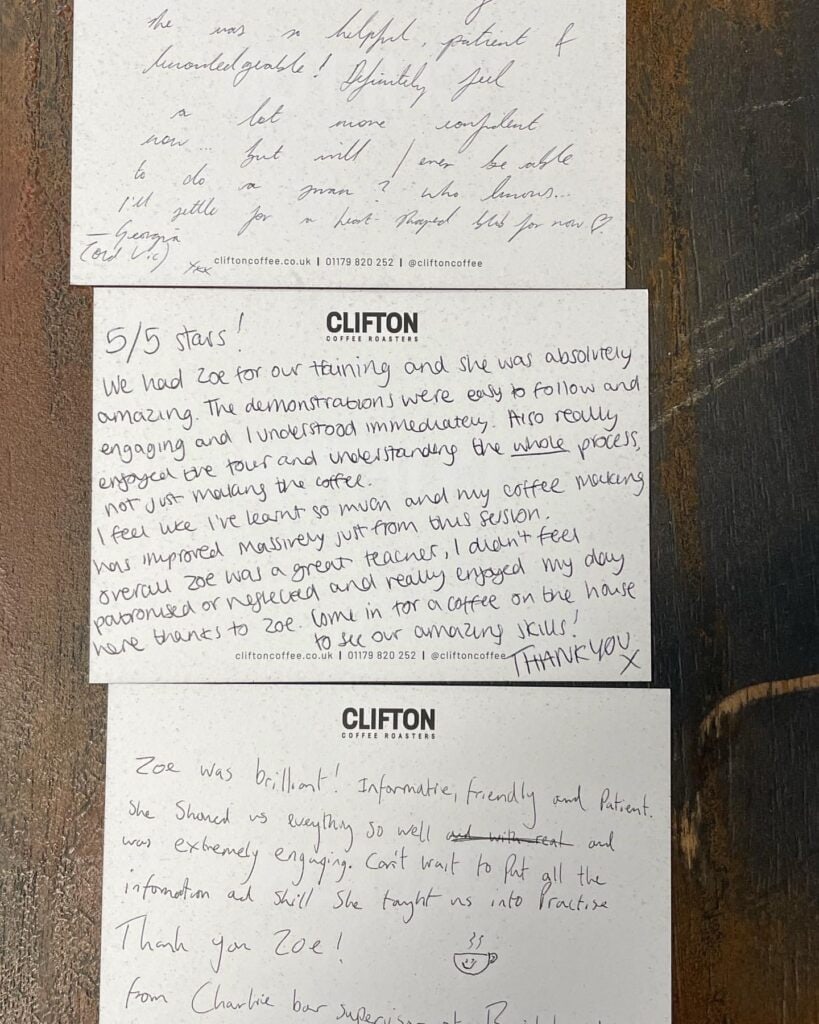 she was so helpful, patient &
knowledgeable! Definitely feel
a lot more confident
now... but will I ever be able
to do a swan? who knows...
I'll settle for a heart-shaped blob for now ♡
— Georgia
(Old Vic)
xxx
cliftoncoffee.co.uk | 01179 820 252 | @cliftoncoffee
5/5 stars!
CLIFTON
COFFEE ROASTERS
We had Zoe for our training and she was absolutely
amazing. The demonstrations were easy to follow and
engaging and I understood immediately. Also really
enjoyed the tour and understanding the whole process,
not just making the coffee.
I feel like I've learnt so much and my coffee making
has improved massively just from this session.
overall Zoe was a great teacher, I didn't feel
patronised or neglected and really enjoyed my day
here thanks to Zoe. Come in for a coffee on the house
to see our amazing skills!
THANKYOU
X
cliftoncoffee.co.uk | 01179 820 252 | @cliftoncoffee
CLIFTON
COFFEE ROASTERS
Zoe was brilliant! Informative, friendly and Patient.
She Showed us everything so well and with reat and
was extremely engaging. Can't wait to Put all the
information and skill She taught us into Practise
Thank you Zoe!
from Charlie bar supervisor at